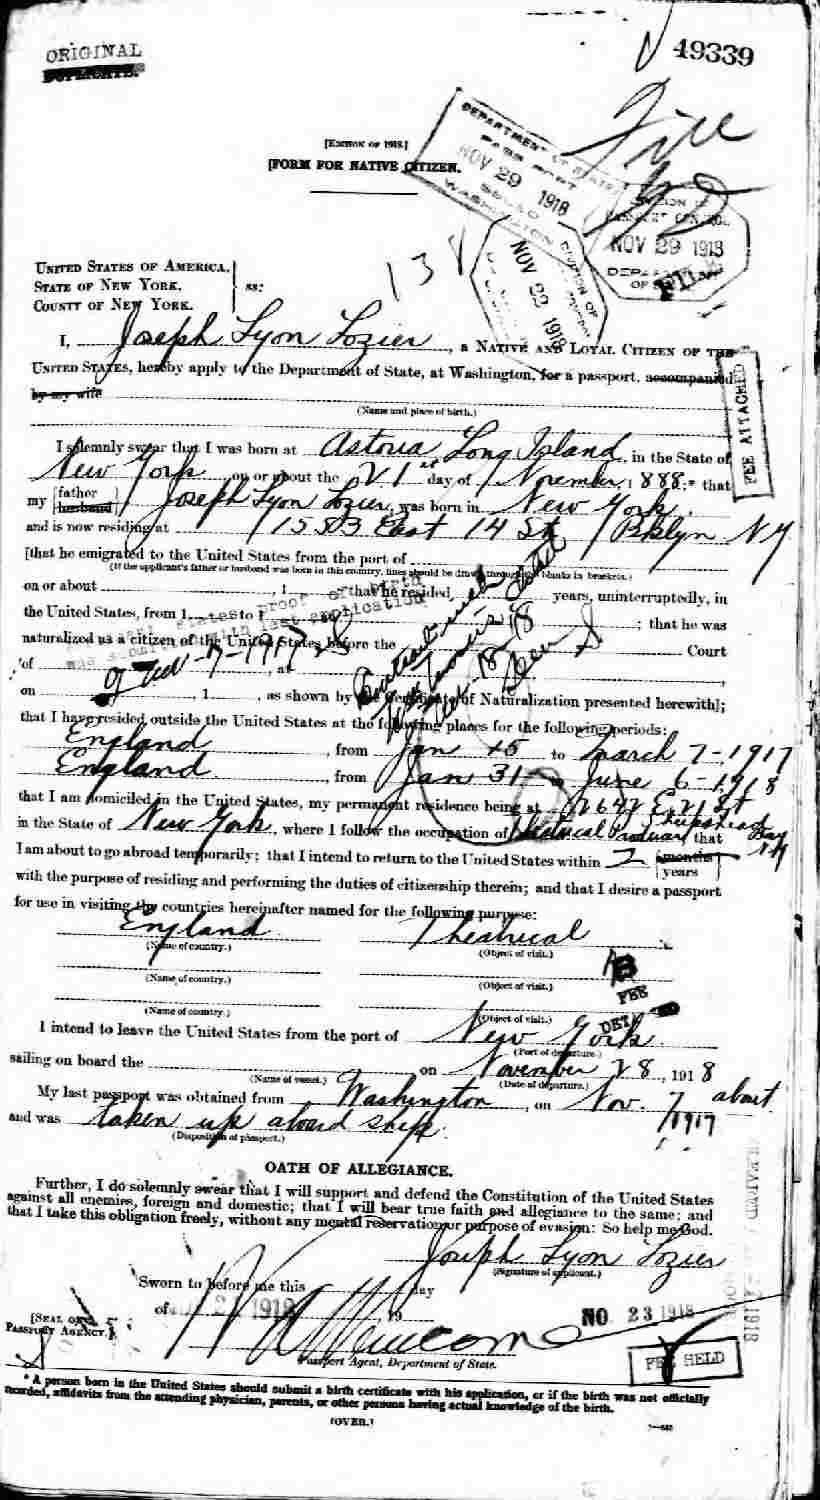 ORIGINAL
DUPLICATE.
49339
[EDITION OF 1918.]
[FORM FOR NATIVE CITIZEN.
File
DEPARTMENT OF STATE
PASSPORT
NOV 29 1918
WASHINGTON
NOV 29 1918
FILE
NOV 22 1918
DIVISION OF
138
UNITED STATES OF AMERICA,
STATE OF NEW YORK,
COUNTY OF NEW YORK.
ss:
I, Joseph Lyon Lozier, a NATIVE AND LOYAL CITIZEN OF THE
UNITED STATES, hereby apply to the Department of State, at Washington, for a passport, accompanied
by my wife
(Name and place of birth.)
FEE ATTACHED
I solemnly swear that I was born at Astoria Long Island, in the State of
New York on or about the 21st day of November, 1888;* that
my {father husband} Joseph Lyon Lozier, was born in New York.
and is now residing at 1583 East 14 St Bklyn NY
[that he emigrated to the United States from the port of
(If the applicant's father or husband was born in this country, lines should be drawn through the blanks in brackets.)
on or about , 1 , that he resided years, uninterruptedly, in
the United States, from 1 to 1 ; that he was
naturalized as a citizen of the United States before the Court
of , at ,
on , 1 , as shown by the Certificate of Naturalization presented herewith];
proof of birth
was with last application
7-1917
that I have resided outside the United States at the following places for the following periods:
England, from Jan 15 to March 7-1917
England, from Jan 31- to June 6-1918
that I am domiciled in the United States, my permanent residence being at 2642 E. 21 St
Sheepshead Bay NY
in the State of New York, where I follow the occupation of Theatrical Producer that
I am about to go abroad temporarily; that I intend to return to the United States within 2 {months years}
with the purpose of residing and performing the duties of citizenship therein; and that I desire a passport
for use in visiting the countries hereinafter named for the following purpose:
England Theatrical
(Name of country.) (Object of visit.)
(Name of country.) (Object of visit.)
(Name of country.) (Object of visit.)
FEE
I intend to leave the United States from the port of New York
(Port of departure.)
sailing on board the on November 28, 1918
(Name of vessel.) (Date of departure.)
My last passport was obtained from Washington, on Nov. 7 about 1917
and was taken up aboard ship.
(Disposition of passport.)
OATH OF ALLEGIANCE.
Further, I do solemnly swear that I will support and defend the Constitution of the United States
against all enemies, foreign and domestic; that I will bear true faith and allegiance to the same; and
that I take this obligation freely, without any mental reservation or purpose of evasion: So help me God.
Joseph Lyon Lozier
(Signature of applicant.)
Sworn to before me this day
of 21 1918 19
NO 23 1918
[SEAL OF
PASSPORT AGENCY.]
Newcome
Passport Agent, Department of State.
FEE HELD
* A person born in the United States should submit a birth certificate with his application, or if the birth was not officially
recorded, affidavits from the attending physician, parents, or other persons having actual knowledge of the birth.
(OVER.)